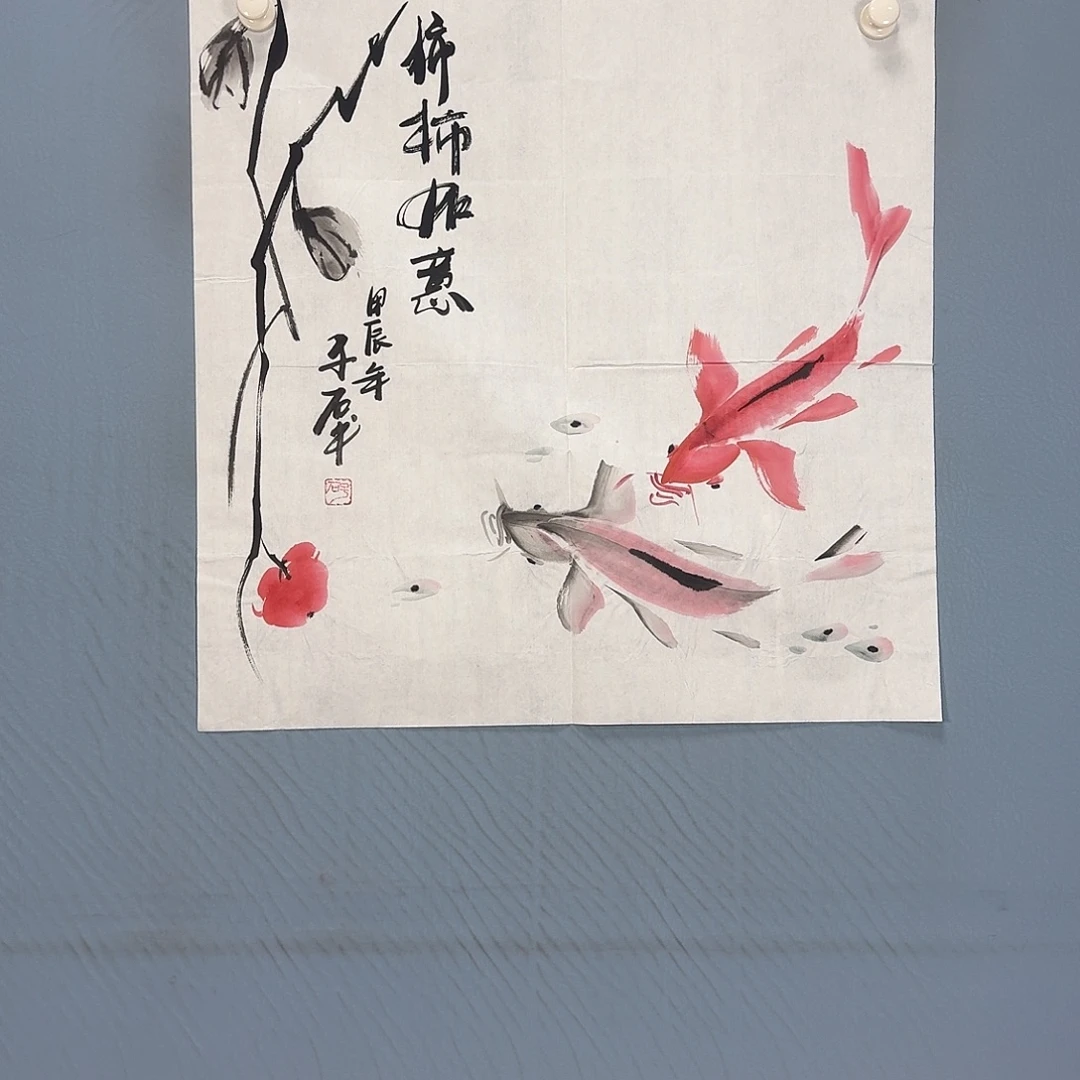 柿柿如意
甲辰年
子石